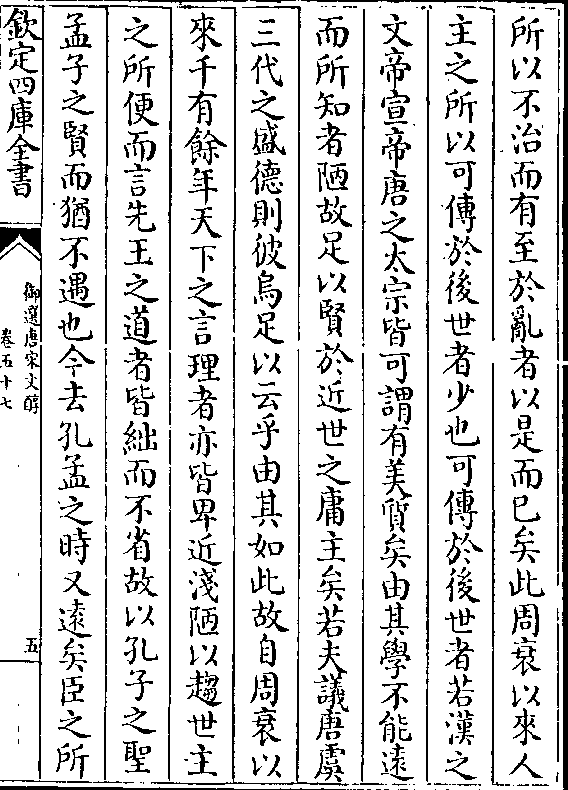 所以不治而有至於亂者以是而已矣此周衰以來人
主之所以可傳於後世者少也可傳於後世者若漢之
文帝宣帝唐之太宗皆可謂有美質矣由其學不能遠
而所知者陋故足以賢於近世之庸主矣若夫議唐虞
三代之盛德則彼烏足以云乎由其如此故自周衰以
來千有餘年天下之言理者亦皆卑近淺陋以趨世主
之所便而言先王之道者皆絀而不省故以孔子之聖
孟子之賢而猶不遇也今去孔孟之時又遠矣臣之所
欽定四庫全書
御選唐宋文醇
卷五十七
五